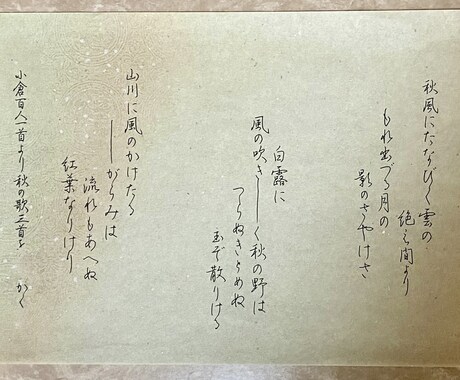 秋風にたなびく雲の
絶え間より
もれ出づる月の
影のさやけさ
白露に
風の吹きしく秋の野は
つらぬきとめぬ
玉ぞ散りける
山川に風のかけたる
しがらみは
流れもあへぬ
紅葉なりけり
小倉百人一首より秋の歌三首を かく